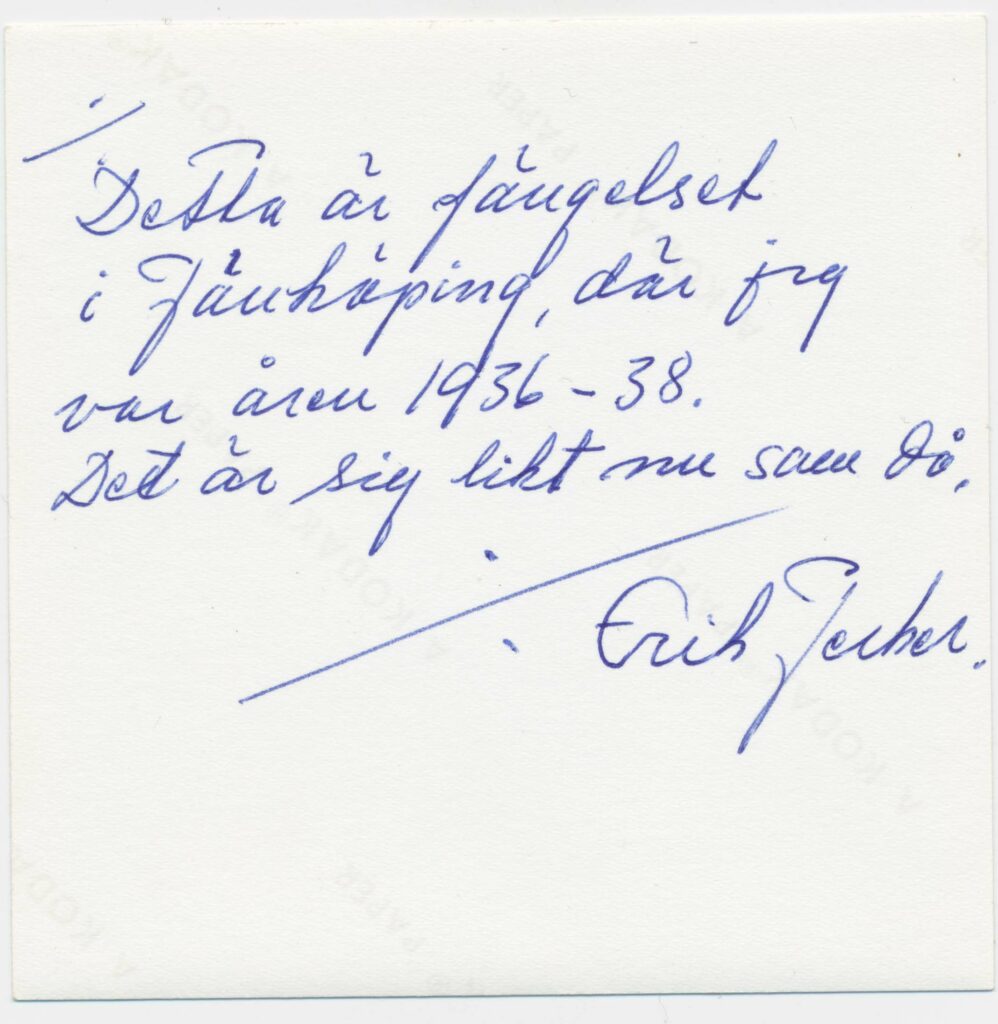 Detta är fängelset
i Jönköping, där jag
var åren 1936-38.
Det är sig likt nu som då.
Erik Jerker.
A KODAK PAPER